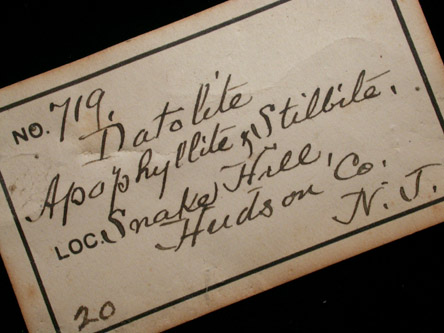 NO. 719.
Datolite
Apophyllite & Stilbite.
LOC. Snake Hill,
Hudson Co.
N. J.
20